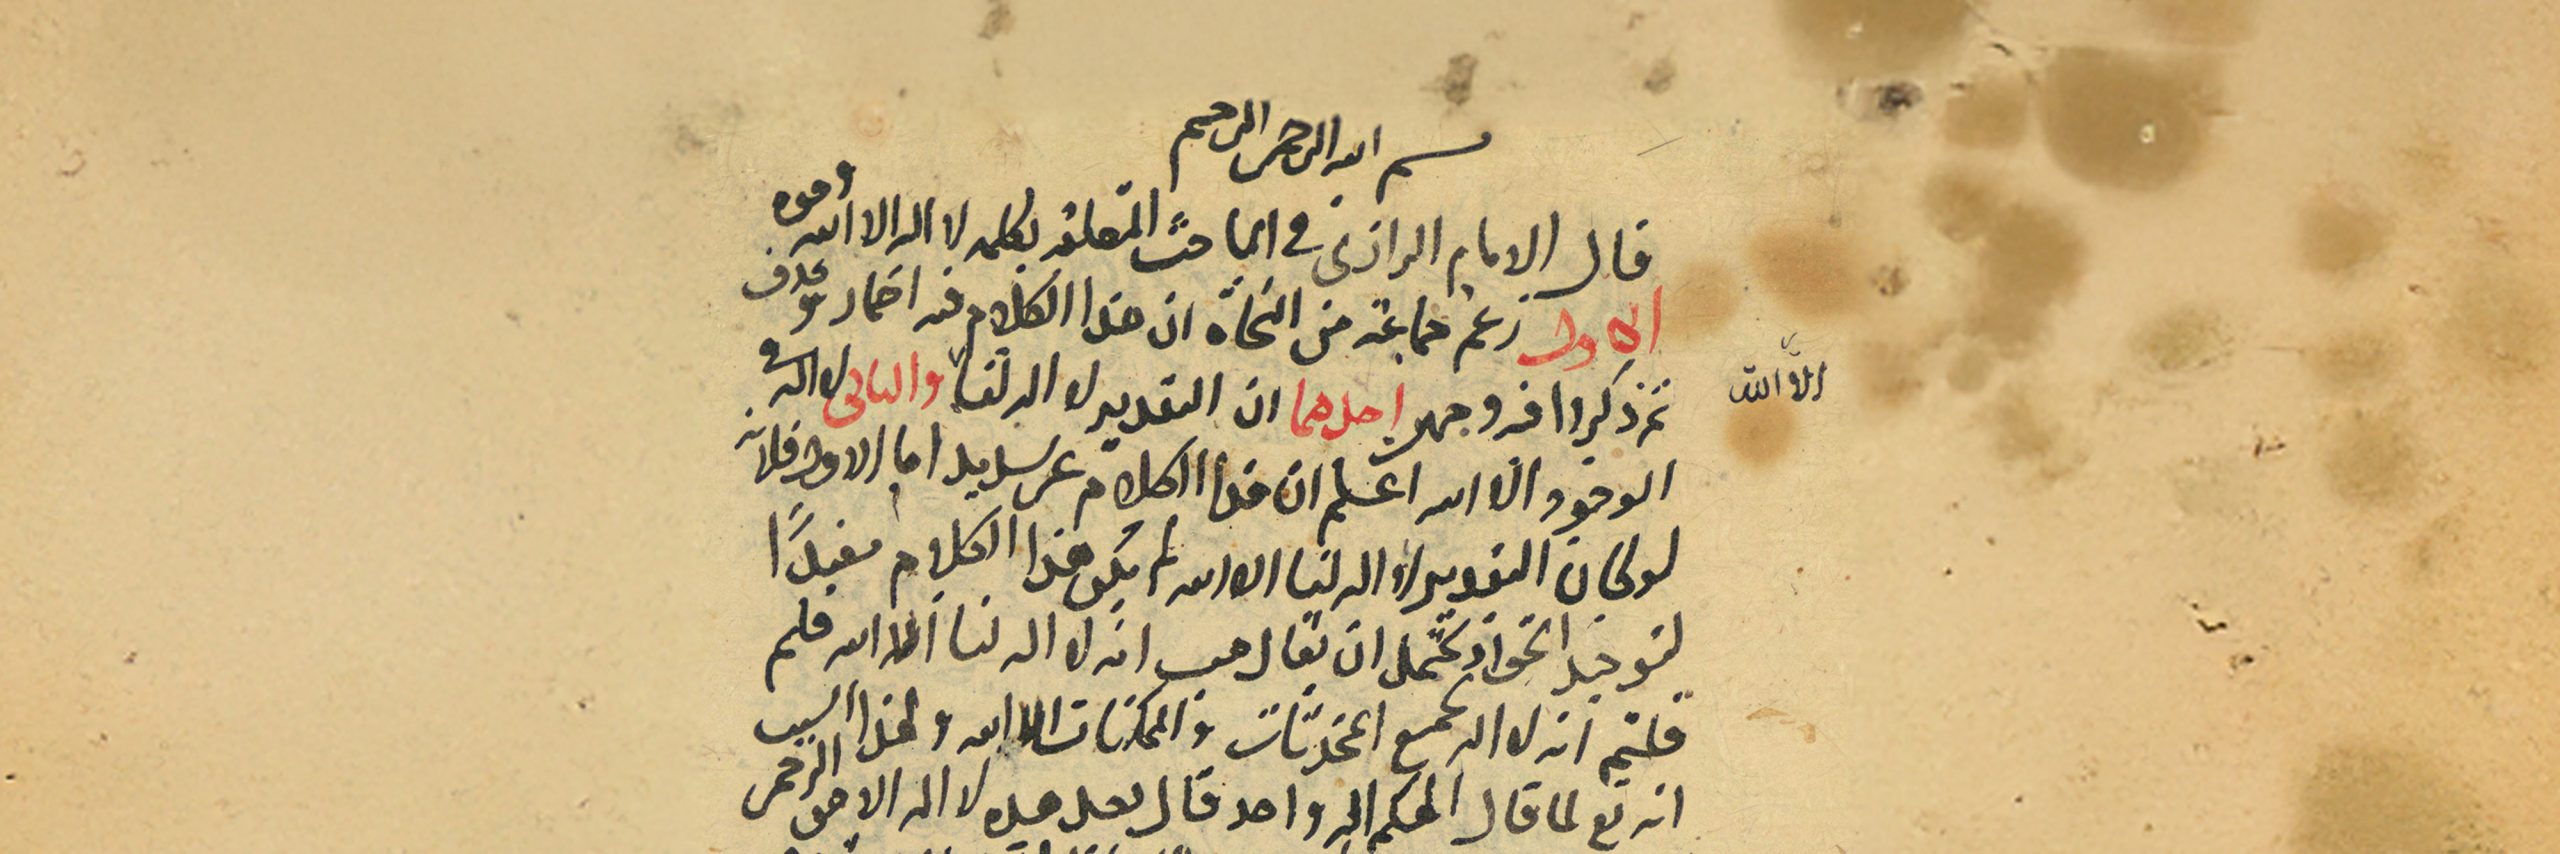 بسم الله الرحمن الرحيم
قال الامام الرازى في المباحث المتعلقه بكلمه لا اله الا الله وجوه
الاول زعم جماعة من النحاة ان هذا الكلام فيه اضمار وحذف
ثم ذكروا فيه وجهين احدهما ان التقدير لا اله لنا والثانى لا اله فى
الا الله
الوجود الا الله اعلم ان هذا الكلام غير سديد اما الاول فلانه
لو كان التقدير لا اله لنا الا الله لم يكن هذا الكلام مفيدًا
لتوحيد الحق اذ يحتمل ان يقال هب انه لا اله لنا الا الله فلم
قلتم انه لا اله لجميع المحدثات والممكنات الا الله ولهذا السبب
انه تع لما قال الهكم اله واحد قال بعد هذه لا اله الا هو الرحمن